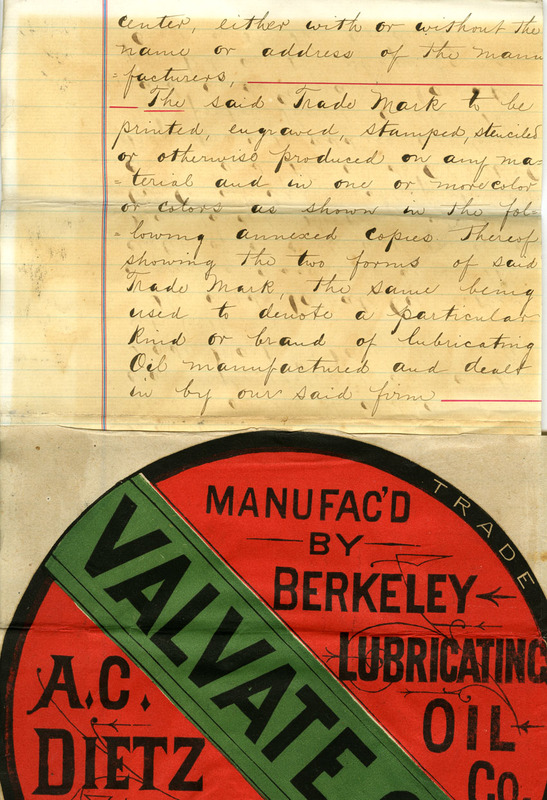 center, either with or without the
name or address of the manu
-facturers,
The said Trade Mark to be
printed, engraved, stamped, stenciled
or otherwise produced on any ma-
-terial and in one or more color
or colors as shown in the fol-
-lowing annexed copies thereof
showing the two forms of said
Trade Mark, the same being
used to denote a particular
kind or brand of lubricating
Oil manufactured and dealt
in by our said firm
TRADE
MANUFAC'D
BY
BERKELEY
LUBRICATING
OIL
Co.
VALVATE
A.C.
DIETZ